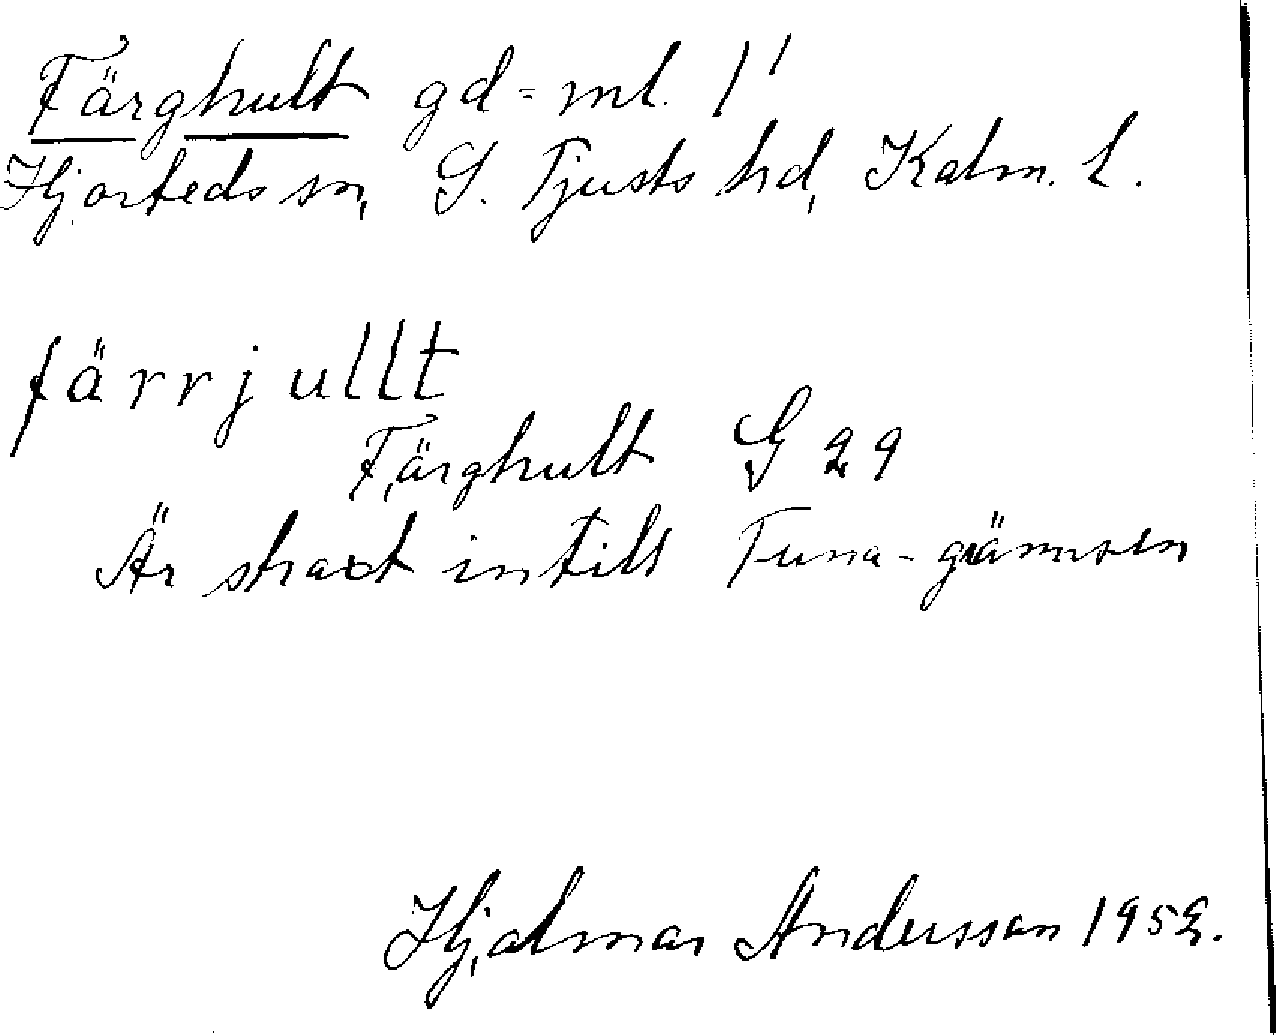 Färghult gd-ml. 1'
Hjorteds sn, S. Tjusts hd, Kalm. l.
färrjullt
Färghult G 29
Är straxt intill Tuna-gränsen
Hjalmar Andersson 1952.